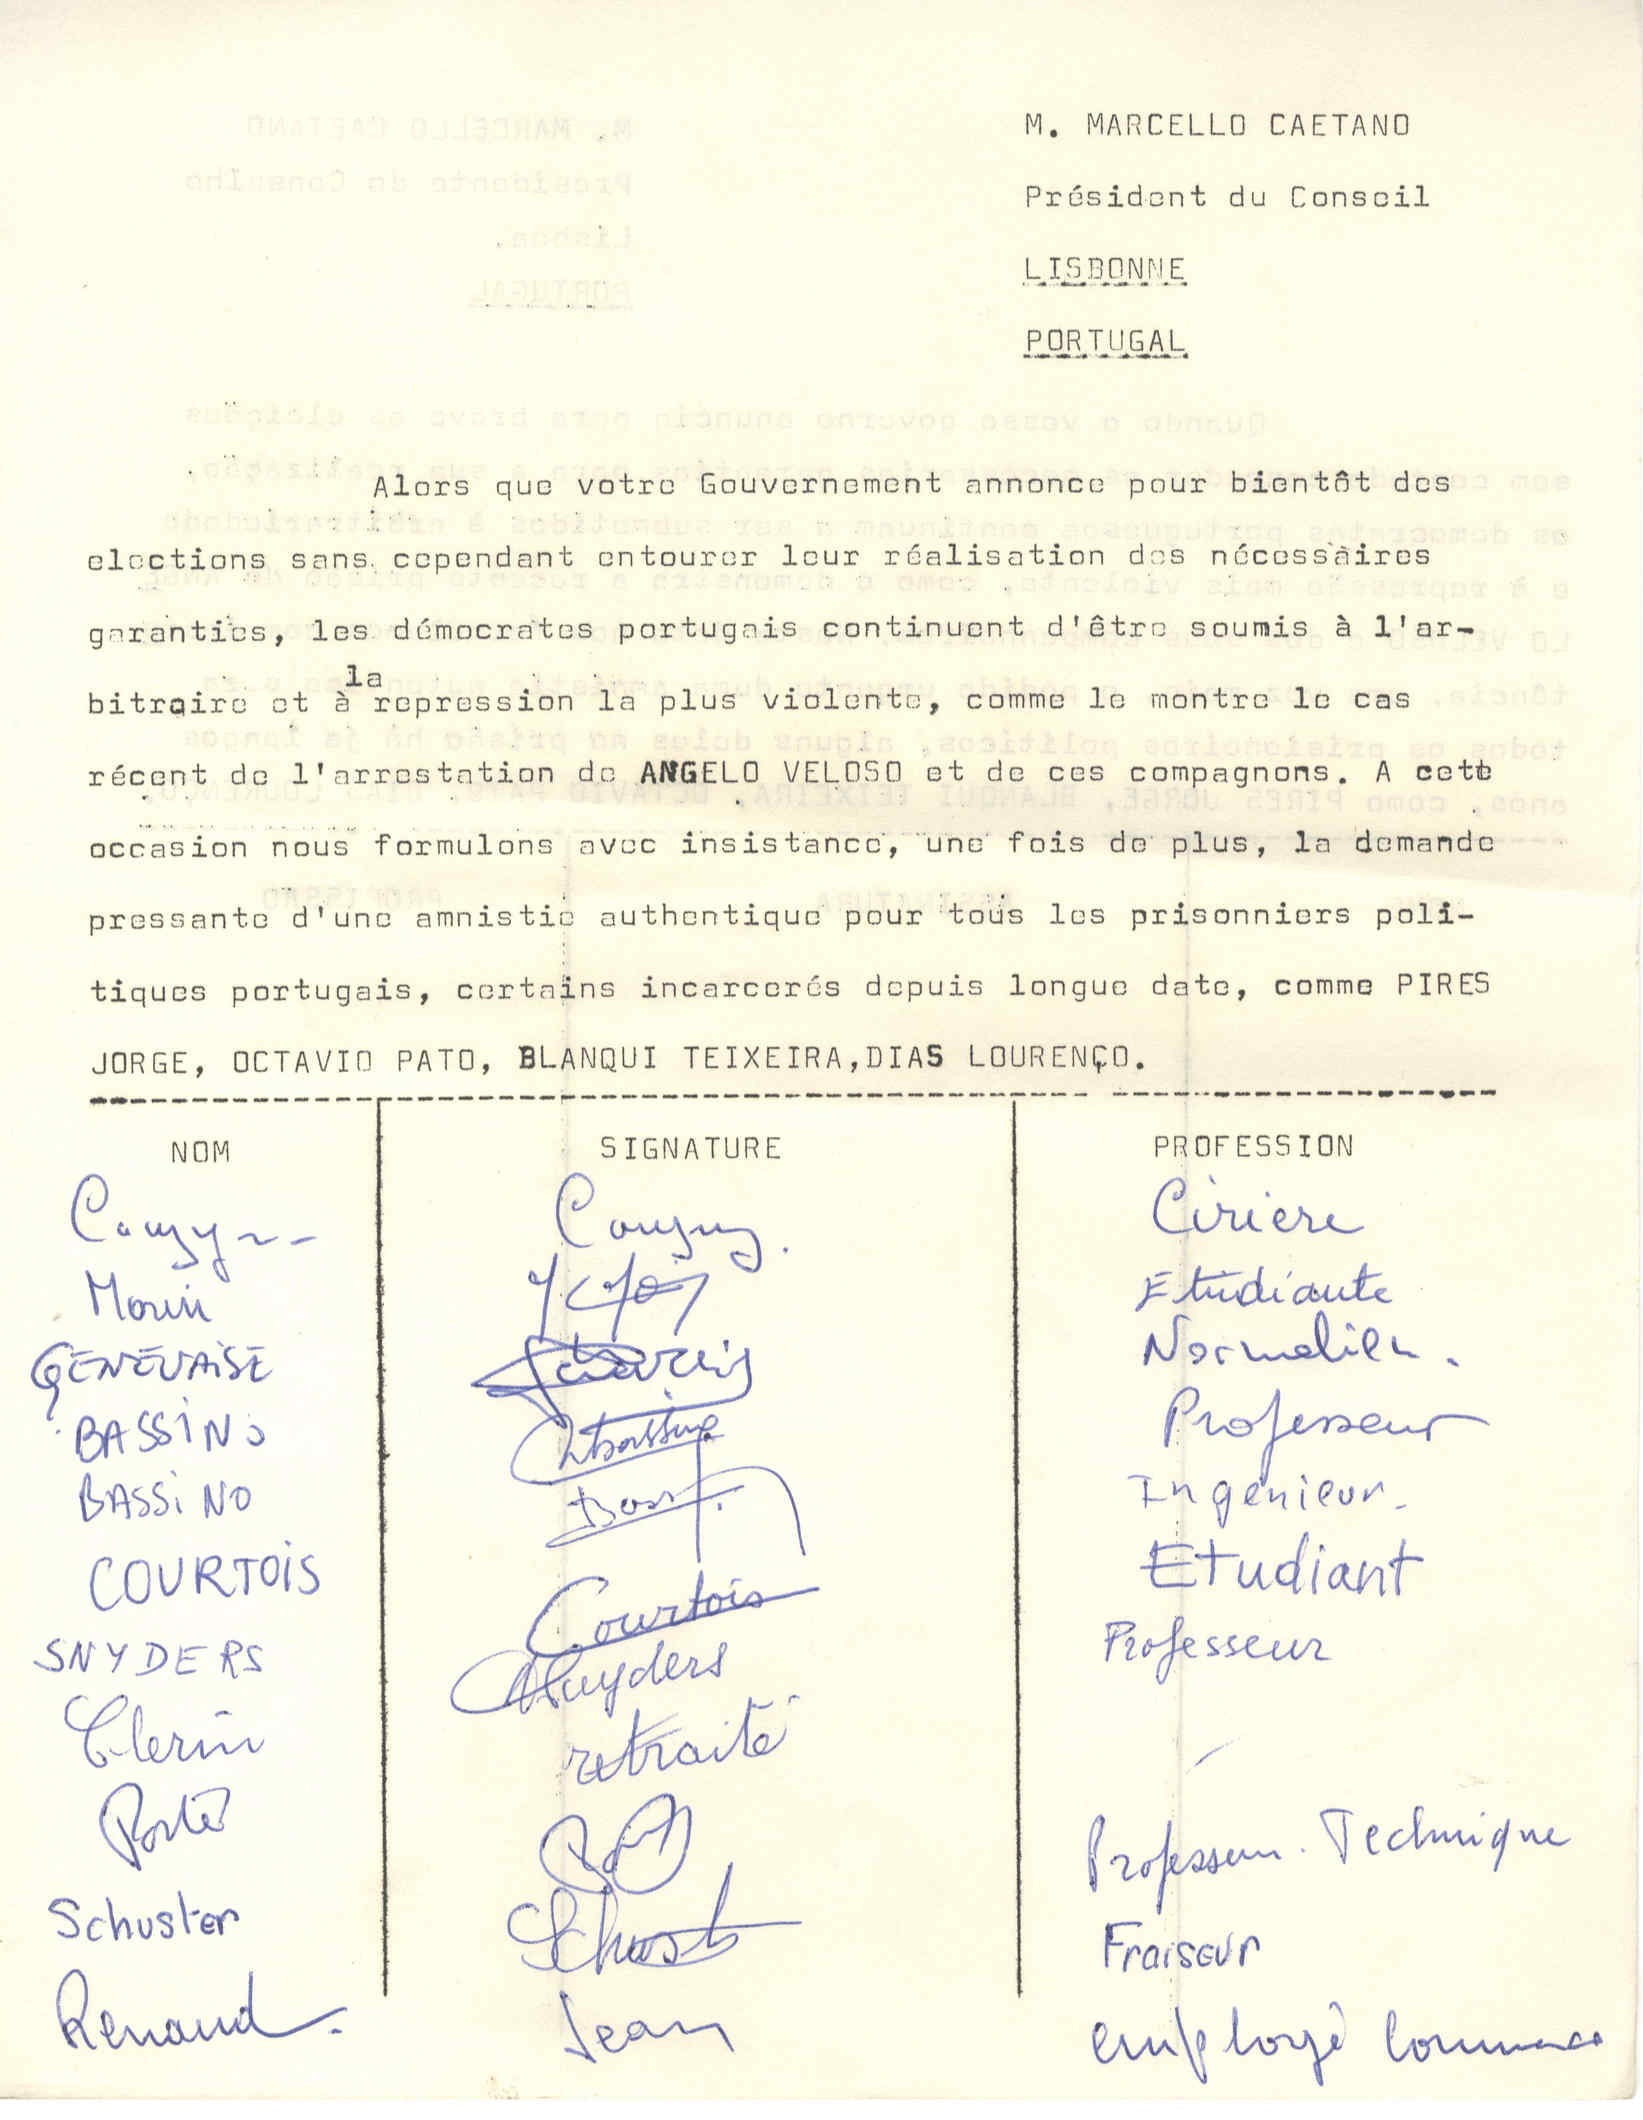 M. MARCELLO CAETANO
Président du Conseil
LISBONNE
PORTUGAL
Alors que votre Gouvernement annonce pour bientôt des
elections sans cependant entourer leur réalisation des nécessaires
garanties, les démocrates portugais continuent d'être soumis à l'ar-
la
bitraire et à repression la plus violente, comme le montre le cas
récent de l'arrestation de ANGELO VELOSO et de ces compagnons. A cett
occasion nous formulons avec insistance, une fois de plus, la demande
pressante d'une amnistie authentique pour tous les prisonniers poli-
tiques portugais, certains incarcerés depuis longue date, comme PIRES
JORGE, OCTAVIO PATO, BLANQUI TEIXEIRA,DIAS LOURENÇO.
NOM SIGNATURE PROFESSION
Cirière
Morin Etudiante
GENEVAISE Normalien.
BASSINO Bassino Professeur
BASSINO Ingénieur.
COURTOIS Courtois Etudiant
SNYDERS Snyders Professeur
Clerin retraité
Professeur Technique
Schuster Schust Fraiseur
Renaud. Jean employé Commerce